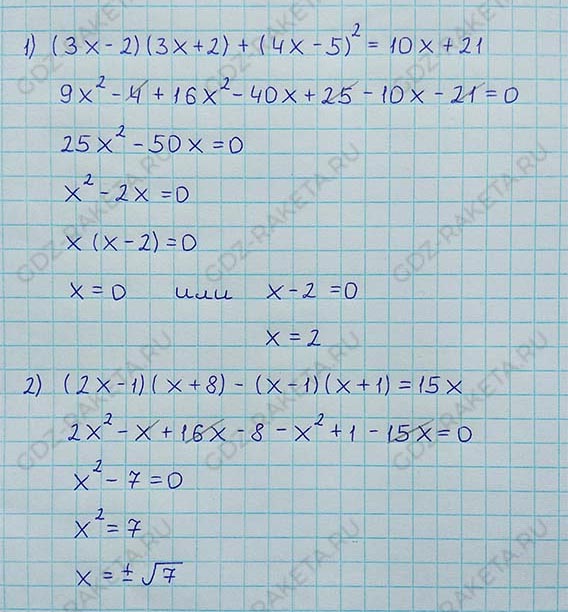 1) (3x-2)(3x+2) + (4x-5)² = 10x+21
9x² - 4 + 16x² - 40x + 25 - 10x - 21 = 0
25x² - 50x = 0
x² - 2x = 0
x (x-2) = 0
x = 0 или x-2 = 0
x = 2
2) (2x-1)(x+8) - (x-1)(x+1) = 15x
2x² - x + 16x - 8 - x² + 1 - 15x = 0
x² - 7 = 0
x² = 7
x = ± √7
GDZ-RAKETA.RU